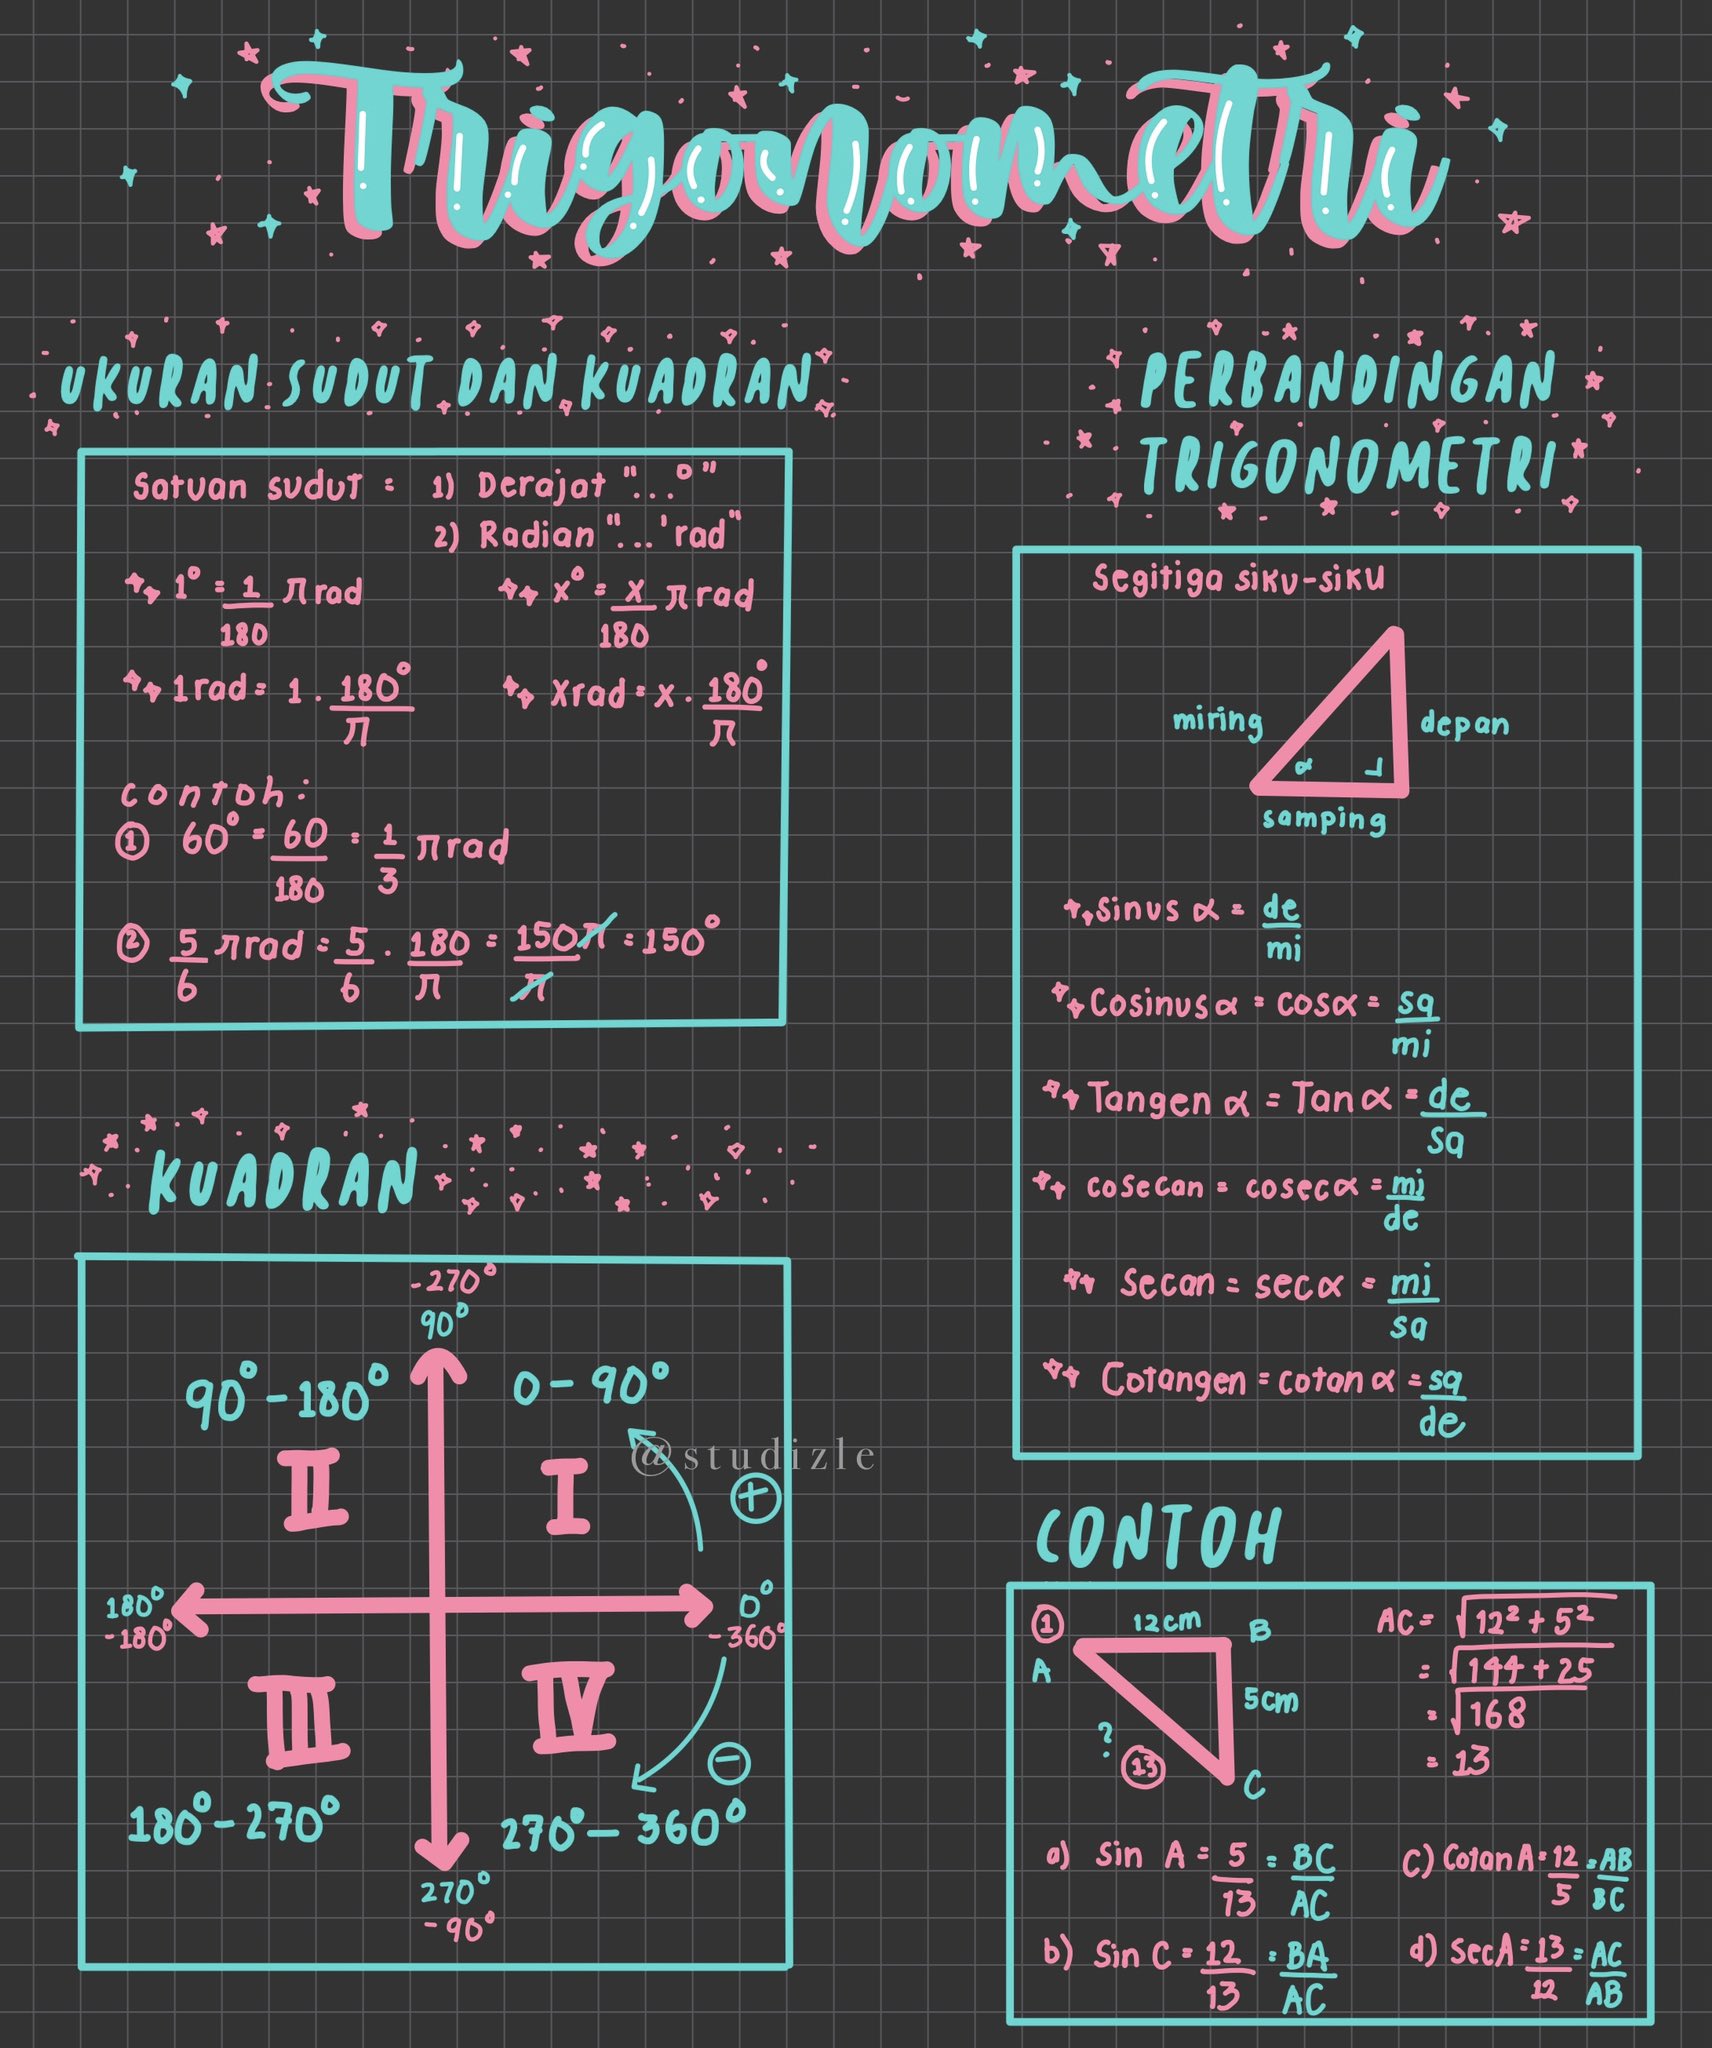 Trigonometri
UKURAN SUDUT DAN KUADRAN
Satuan sudut : 1) Derajat "...°"
2) Radian "...' rad"
1° = 1/180 π rad
x° = x/180 π rad
1 rad = 1 . 180°/π
x rad = x . 180°/π
contoh :
① 60° = 60/180 = 1/3 π rad
② 5/6 π rad = 5/6 . 180/π = 150π/π = 150°
KUADRAN
-270°
90°
90° - 180°
0 - 90°
II
I
@studizle
+
180°
-180°
0°
-360°
III
IV
−
180° - 270°
270° - 360°
270°
-90°
PERBANDINGAN
TRIGONOMETRI
Segitiga siku-siku
miring
depan
α
samping
Sinus α = de/mi
Cosinus α = cos α = sa/mi
Tangen α = Tan α = de/sa
cosecan = cosec α = mi/de
Secan = sec α = mi/sa
Cotangen = cotan α = sa/de
CONTOH
①
12cm
B
A
5cm
?
13
C
AC = √12² + 5²
= √144 + 25
= √168
= 13
a) Sin A = 5/13 = BC/AC
b) Sin C = 12/13 = BA/AC
c) Cotan A = 12/5 = AB/BC
d) Sec A = 13/12 = AC/AB